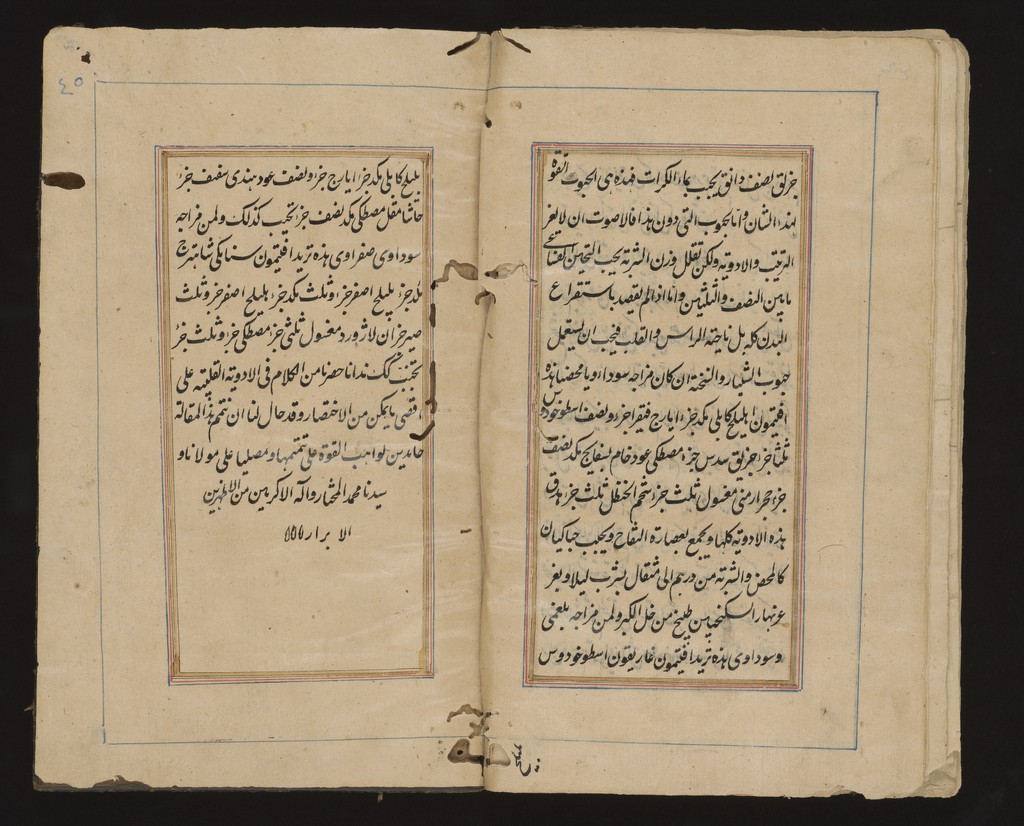 جزلق نصف دانق يحبب بماء الكراث فهذه هى الحبوب القوة
لهذا الشان واما الحبوب التى دون هذا فالاصوت ان لا يغر
الترتيب والادوية ولكن تقلل وزن الشربة يحب التخين
ما بين النصف والثلثين واما اذا لم يقصد باستفراغ
البدن كله بل ناحية الراس والقلب فيجب ان يستعمل
حبوب الشبيار والنسخة ان كان مزاجه سوداويا محضا هذه
افتيمون اهليلج كابلى مكد جزء ايارج فيقرا جزء ونصف اسطوخودوس
ثلثا جزء سدس جزء مصطكى عود خام بسفايج مكد نصف
جزء حجر ارمنى مغسول ثلث جزء شحم الحنظل ثلث جزء يدق
هذه الادوية كلها ويجمع بعصارة التفاح ويحبب حبا كبان
كالمحض والشربة من درهم الى مثقال يشرب ليلا ويغر
غر نهارا سكنجبين طبيخ من خل الكبر ولمن مزاجه بلغمى
وسوداوى هذه تريد افتيمون غاريقون اسطوخودوس
٤٥
بليلج كابلى مكد جزء ايارج جزء ونصف عود هندى سفنف جزء
حاشا مقل مصطكى مكد نصف جزء يحبب كذلك ولمن مزاجه
سوداوى صفراوى هذه تريد افتيمون سنا مكى شاهترج
مكد جزء هليلج اصفر جزء وثلث مكد جزء هليلج اصفر جزء وثلث
صبر جزء ان لاژورد مغسول ثلثى جزء مصطكى جزء وثلث جزء
يحبب كك هذا ما حضرنا من الكلام فى الادوية القلبية على
اقصى ما يمكن من الاختصار وقد حان لنا ان نتم هذا المقالة
حامدين لواهب القوة على تتميمها ومصليا على مولانا و
سيدنا محمد المختار وآله الاكرمين من الاطهرين
الابرار